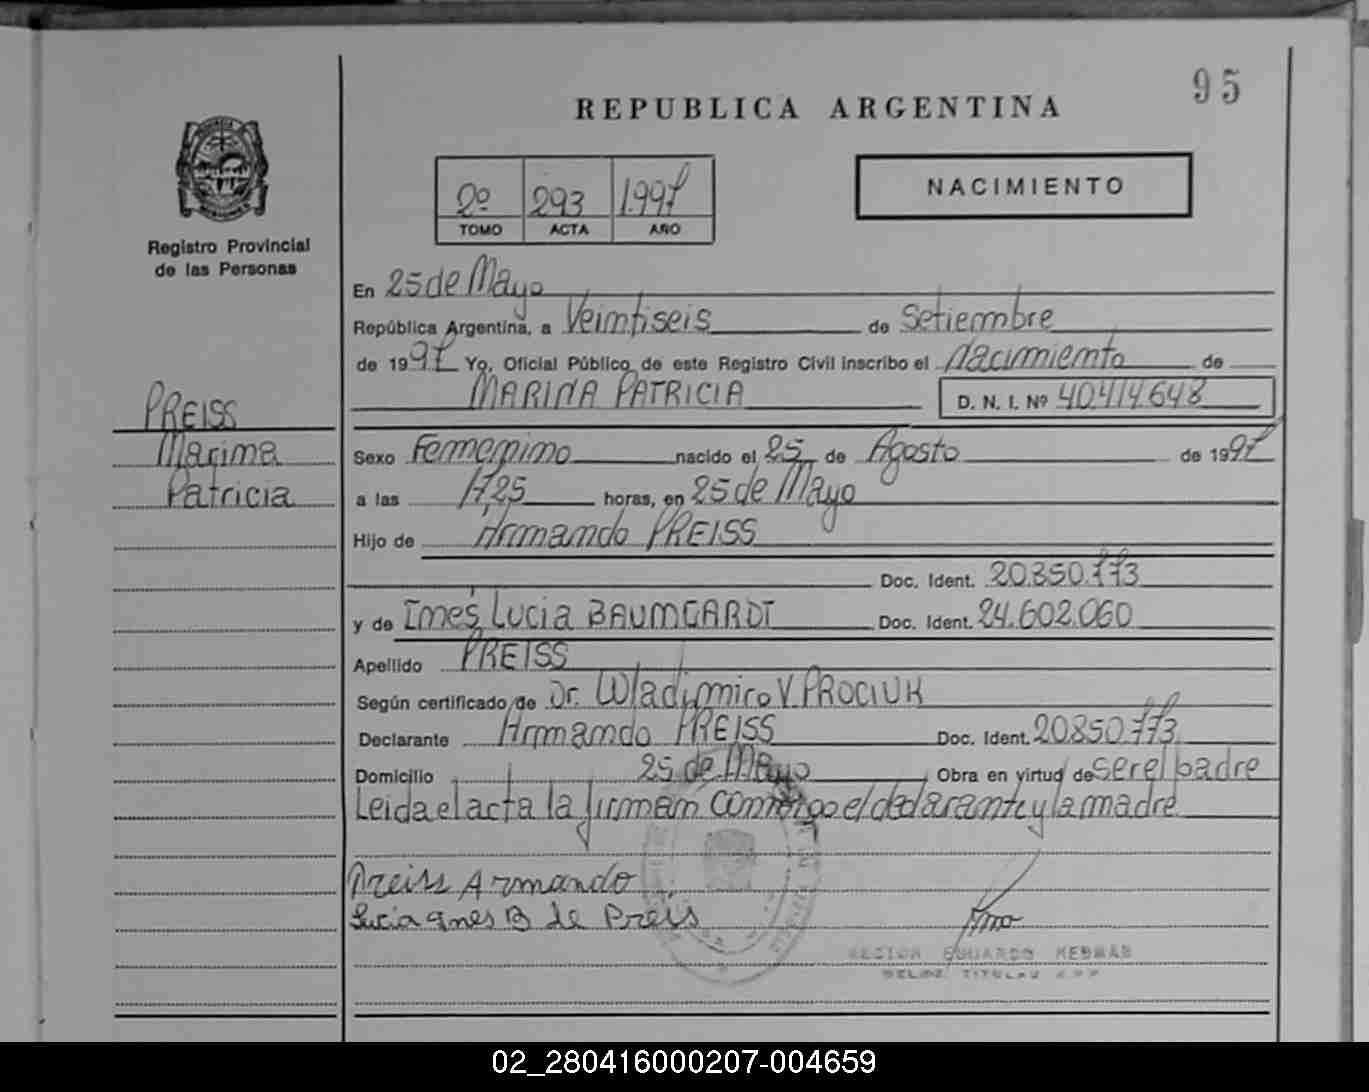 95
REPUBLICA ARGENTINA
2º 293 1.997
TOMO ACTA AÑO
NACIMIENTO
Registro Provincial
de las Personas
En 25 de Mayo
República Argentina, a Veintiseis de Setiembre
de 1997 Yo, Oficial Público de este Registro Civil inscribo el Nacimiento de
MARINA PATRICIA D. N. I. Nº 40.414.648
PREISS
Marina
Patricia
Sexo Femenino nacido el 25 de Agosto de 1997
a las 17,25 horas, en 25 de Mayo
Hijo de Armando PREISS
Doc. Ident. 20.850.773
y de Ines Lucia BAUMGARDT Doc. Ident. 24.602.060
Apellido PREISS
Según certificado de Dr. Wladimiro V. PROCIUK
Declarante Armando PREISS Doc. Ident. 20850.773
Domicilio 25 de Mayo Obra en virtud de ser el padre
Leida el acta la firman conmigo el declarante y la madre
Preiss Armando
Lucia Ines B de Preis
EDUARDO
TITULAR
02_280416000207-004659